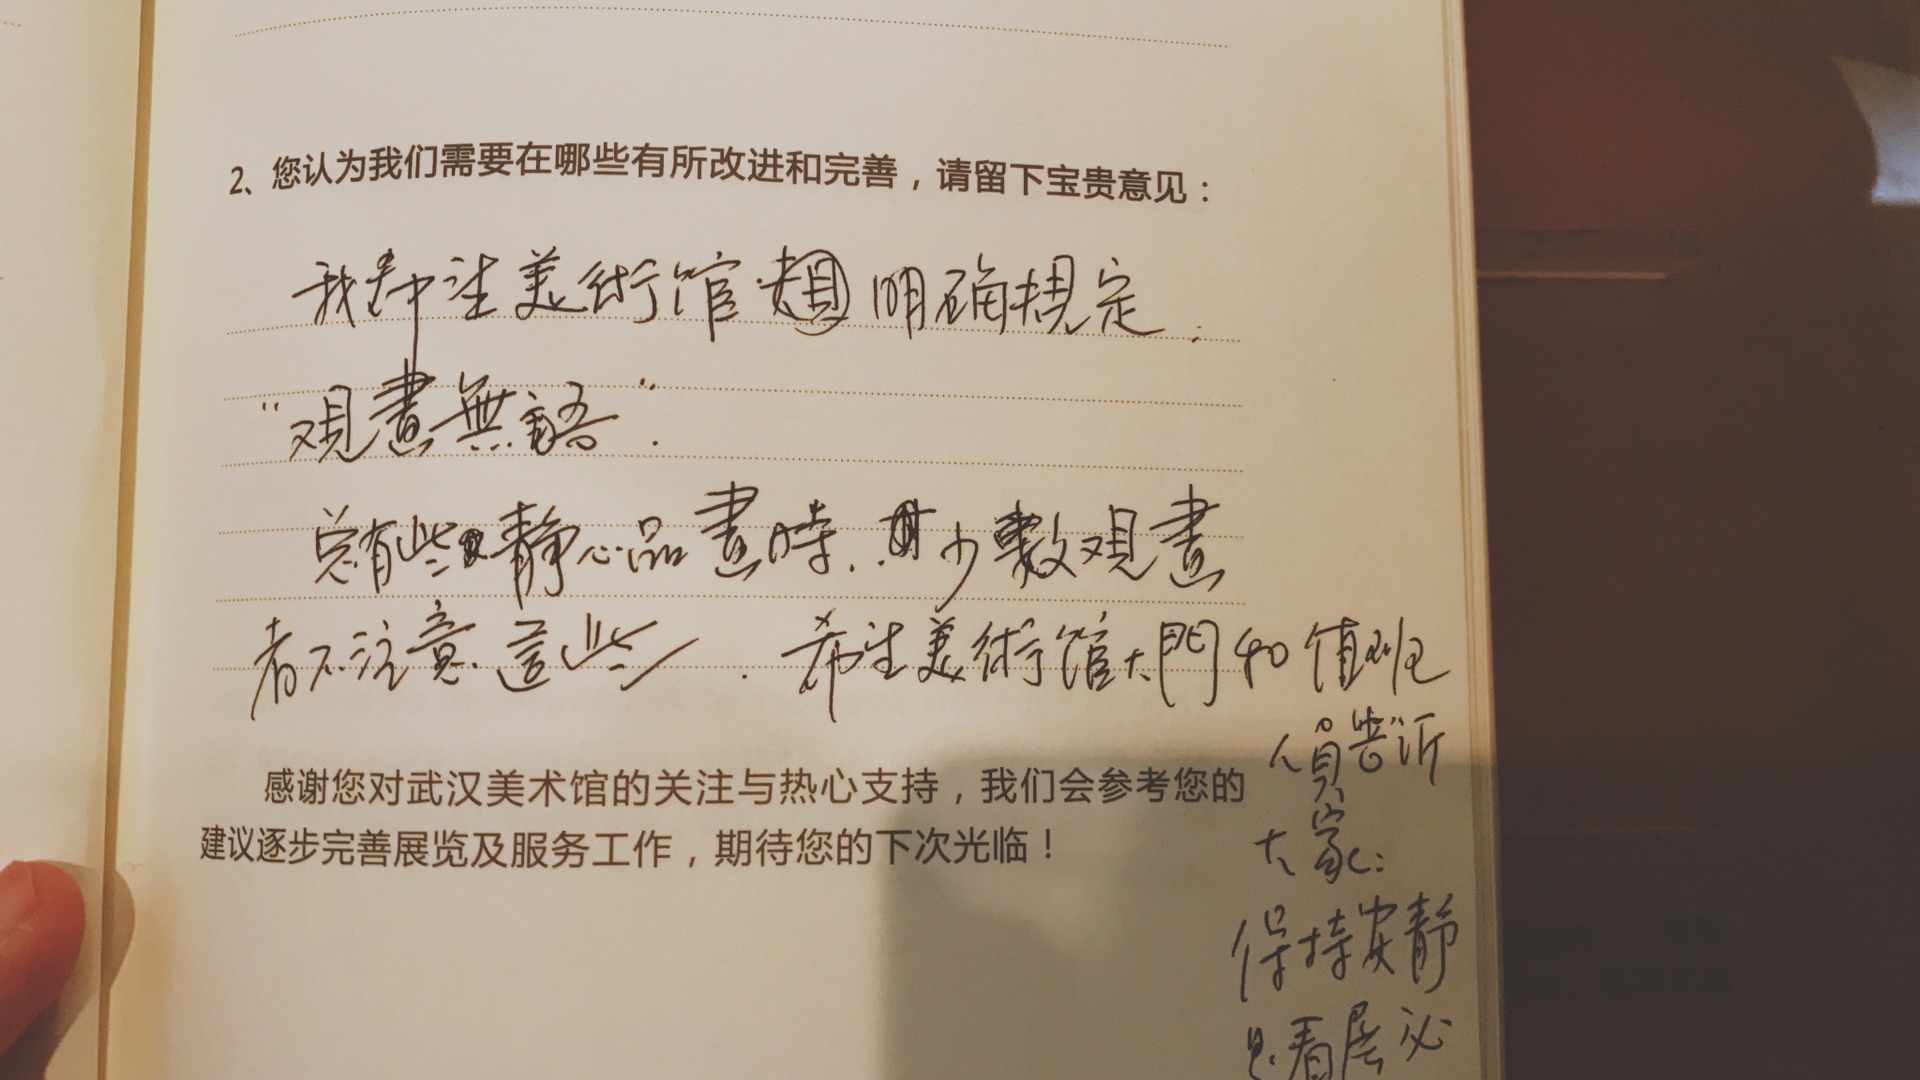 2、您认为我们需要在哪些有所改进和完善，请留下宝贵意见：
我 美術館 明确規定
“观畫無語”.
总有些 静心品畫時. 少數观畫
者不注意這些. 希 美術館大門和值班
人員告诉
大家:
保持安静
是看展必
感谢您对武汉美术馆的关注与热心支持，我们会参考您的
建议逐步完善展览及服务工作，期待您的下次光临！